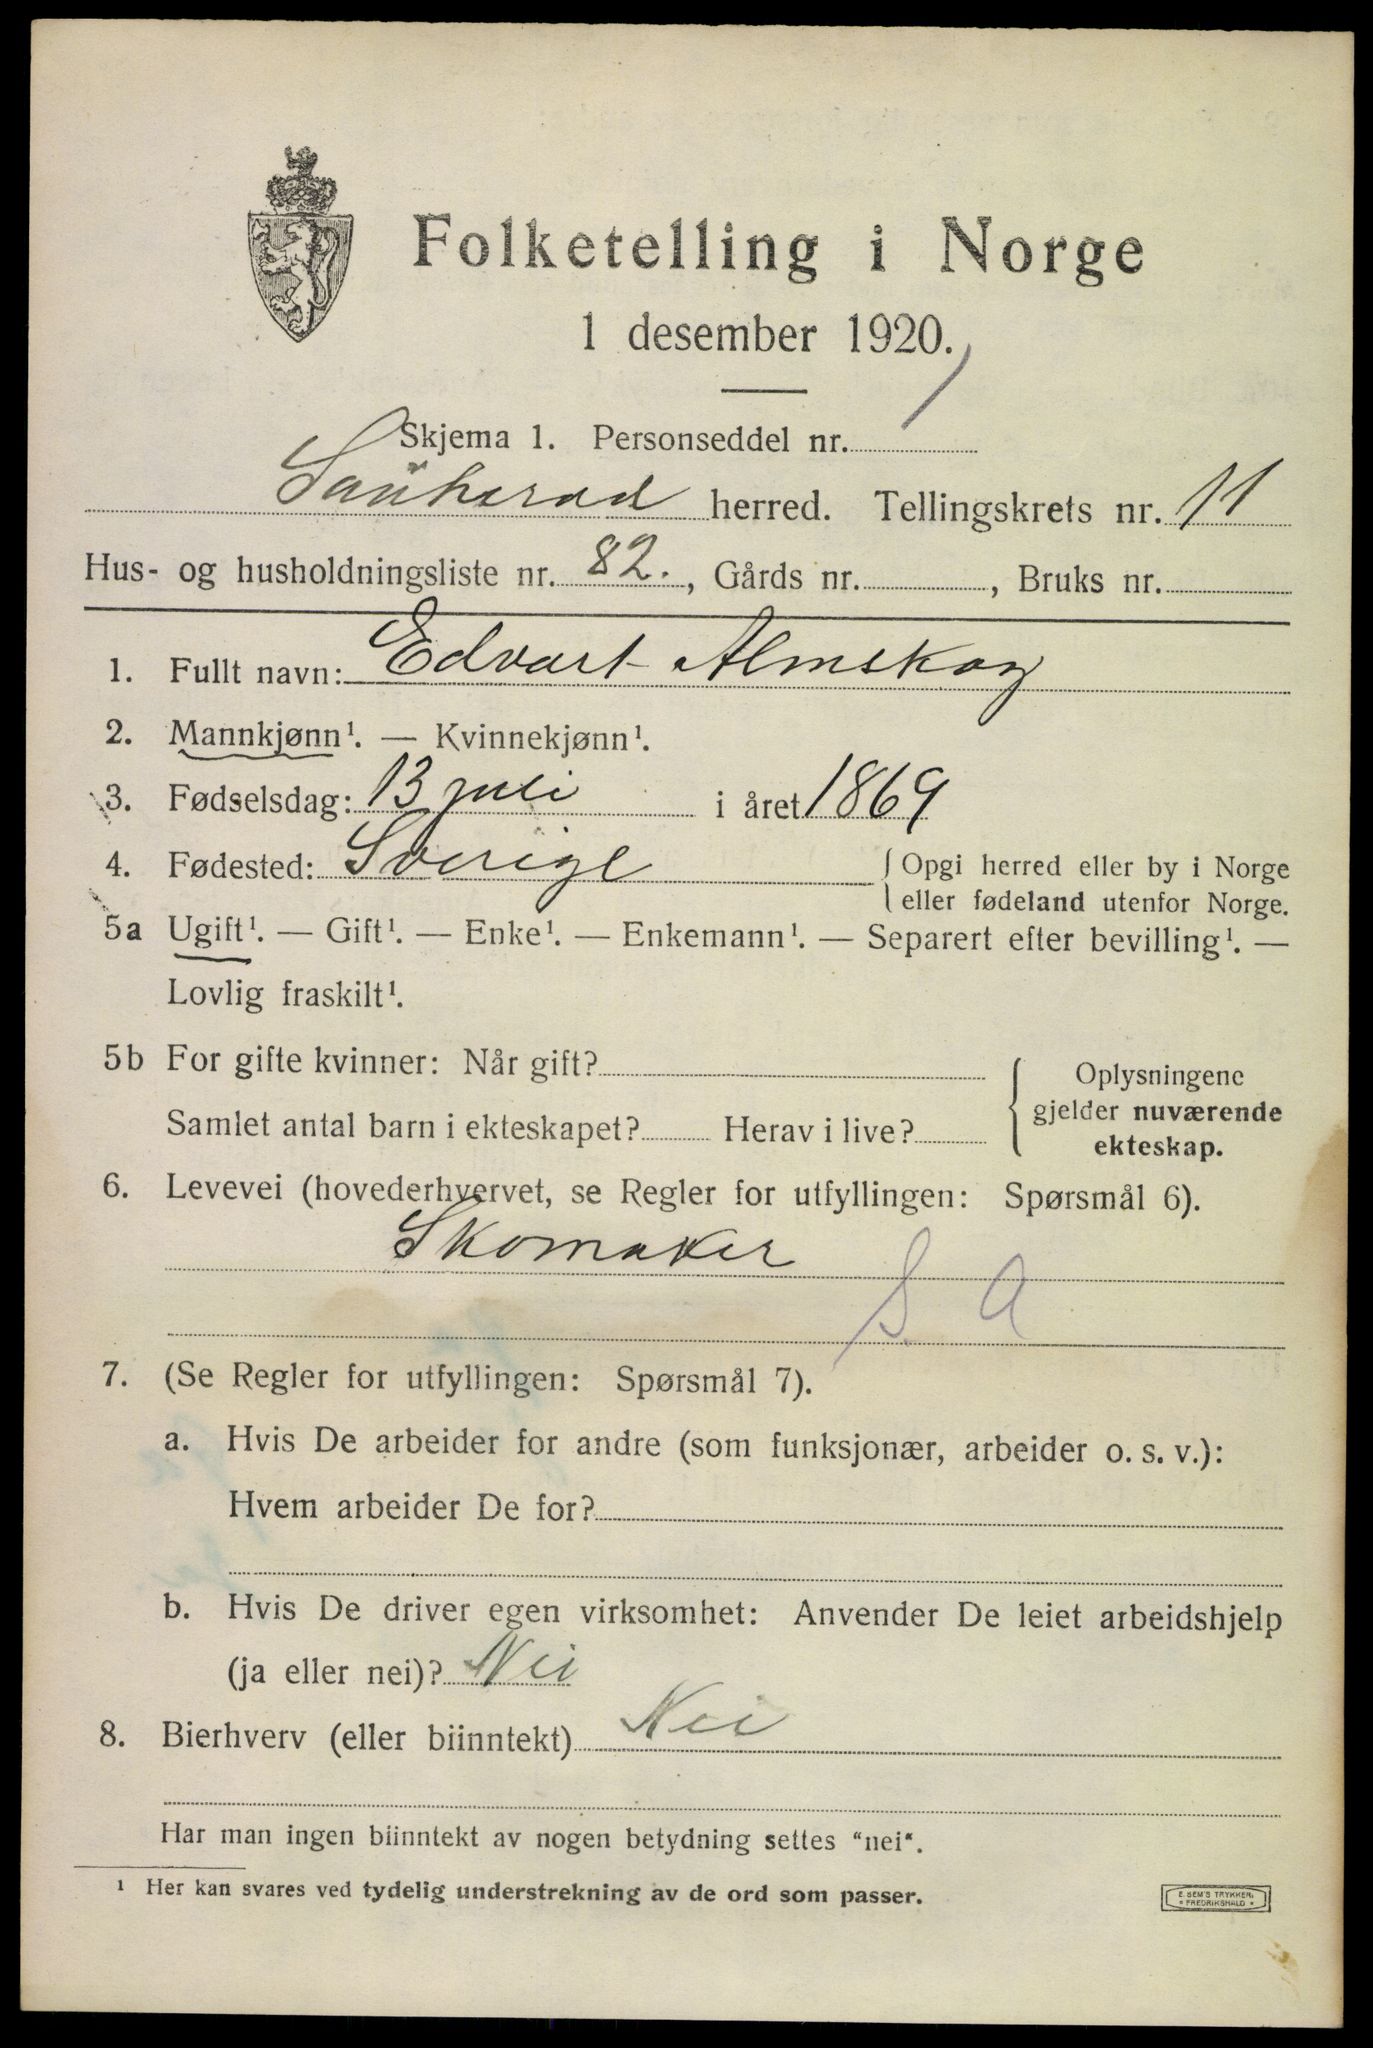 Folketelling i Norge
1 desember 1920.
Skjema 1. Personseddel nr. 1
Sauherad herred. Tellingskrets nr. 11
Hus- og husholdningsliste nr. 82., Gårds nr. , Bruks nr.
1. Fullt navn: Edvart Almskog
2. Mannkjønn¹. — Kvinnekjønn¹.
3. Fødselsdag: 13 juli i året 1869
4. Fødested: Sverige { Opgi herred eller by i Norge
eller fødeland utenfor Norge.
5a Ugift¹. — Gift¹. — Enke¹. — Enkemann¹. — Separert efter bevilling¹. —
Lovlig fraskilt¹.
5b For gifte kvinner: Når gift?
Samlet antal barn i ekteskapet? Herav i live?
{ Oplysningene
gjelder nuværende
ekteskap.
6. Levevei (hovederhvervet, se Regler for utfyllingen: Spørsmål 6).
Skomaker
S. A
7. (Se Regler for utfyllingen: Spørsmål 7).
a. Hvis De arbeider for andre (som funksjonær, arbeider o. s. v.):
Hvem arbeider De for?
b. Hvis De driver egen virksomhet: Anvender De leiet arbeidshjelp
(ja eller nei)? Nei
8. Bierhverv (eller biinntekt) Nei
Har man ingen biinntekt av nogen betydning settes "nei".
¹ Her kan svares ved tydelig understrekning av de ord som passer.
E. SEM'S TRYKKERI
* FREDRIKSHALD *